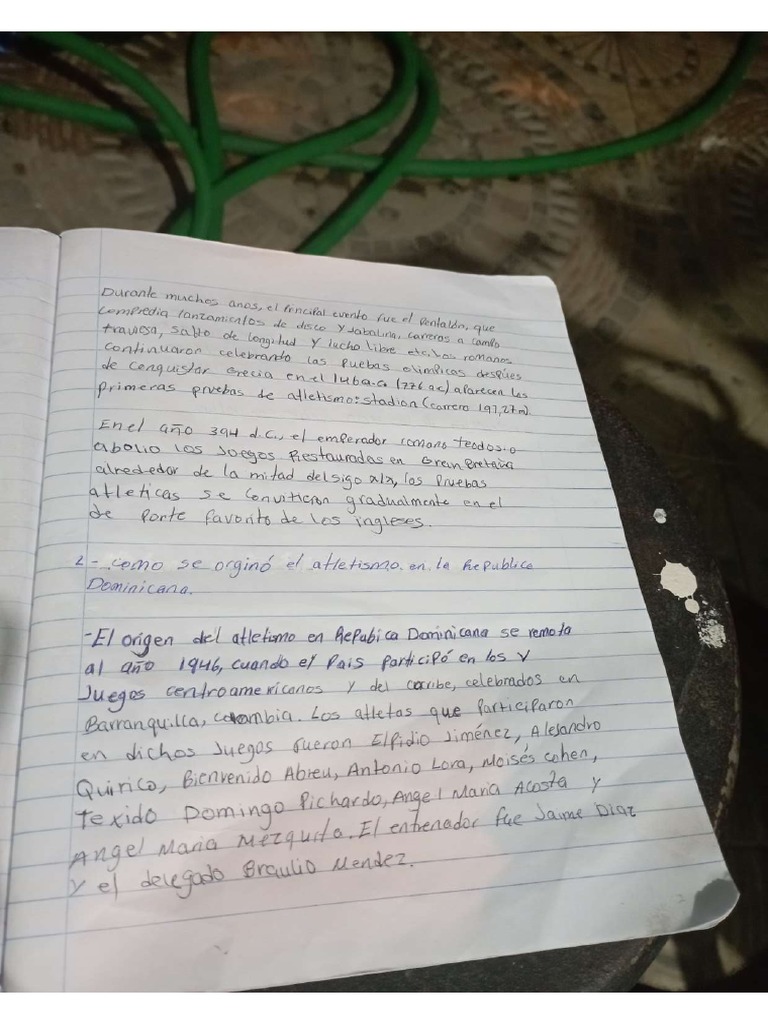 Durante muchos anos, el Principal evento fue el Pentalón, que
compredia lanzamientos de disco y Jabalina, carreras a campo
traviesa, salto de longitud y lucha libre etc. Los romanos
continuaron celebrando las Puebas olimpicas despúes
de conquistar Grecia en el (776 ac) aparecen las
primeras pruebas de atletismo: stadion (carrera 197,27m).
En el año 394 d.c., el emperador romano Teodosio
abolio los Juegos Restaurados en Gran Bretaña
alrededor de la mitad del sigo XIX, las Pruebas
atleticas se convitieron gradualmente en el
de Porte favorito de los ingleses.
2-. como se orginó el atletismo en la Republica
Dominicana.
-El origen del atletismo en Republica Dominicana se remota
al año 1946, cuando el Pais Participó en los V
Juegos centroamericanos y del caribe, celebrados en
Barranquilla, colombia. Los atletas que Participaron
en dichos Juegos fueron Elpidio Jiménez, Alejandro
Quirico, Bienvenido Abreu, Antonio Lora, Moisés cohen,
Texido Domingo Pichardo, Angel Maria Acosta y
Angel Maria Mezquita. El entrenador fue Jaime Diaz
y el delegado Braulio Mendez.